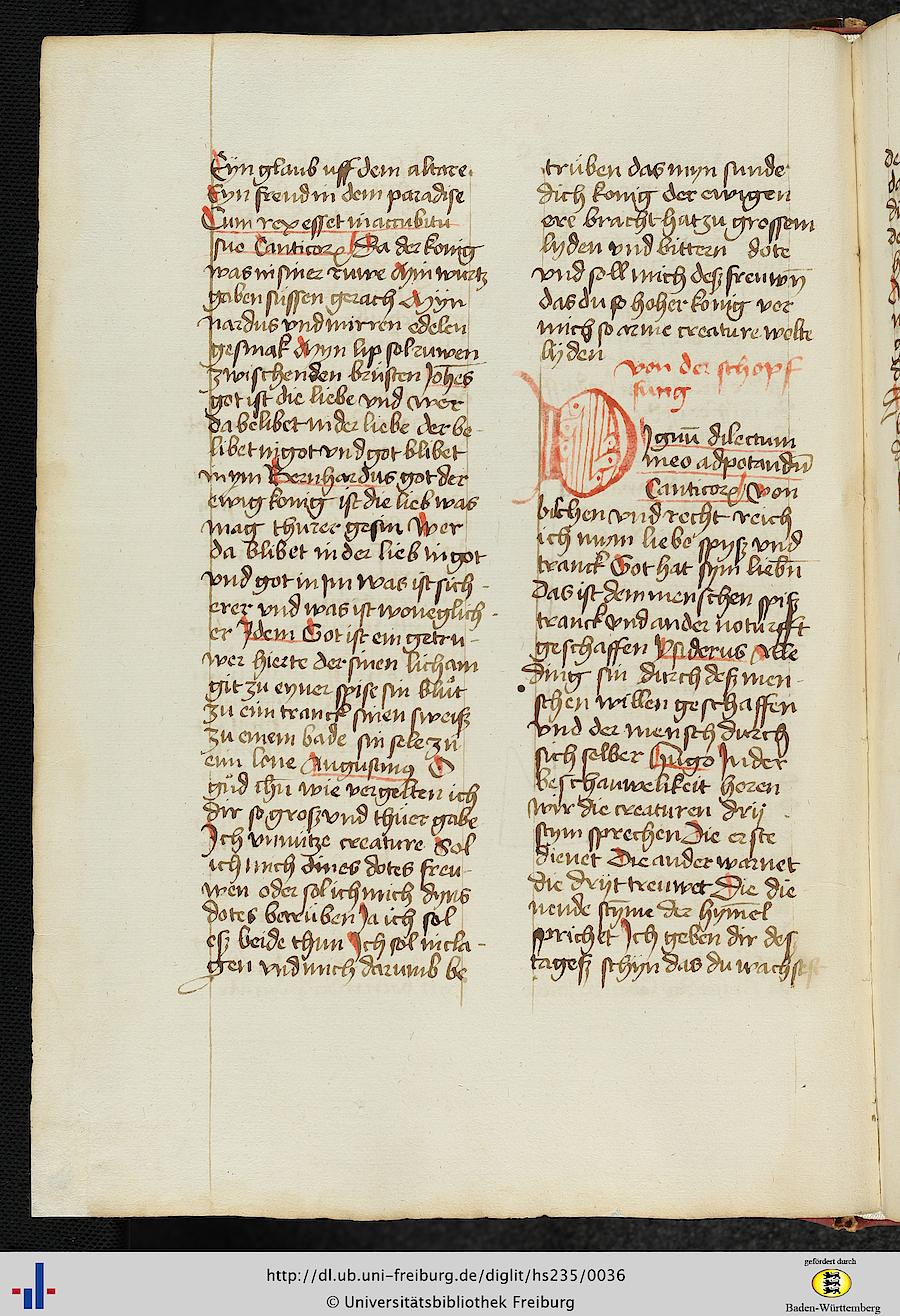 Eyn glaub uff dem altare
Eyn freud in dem paradise
Cum rex esset in accubitu
suo Canticorꝝ Da der konig
was in siner ruwe Myn wurtz
gaben sussen gerach Myn
nardus vnd mirren edelen
gesmak Myn lip sol ruwen
zwischen den brusten Joh̅es
got ist die liebe vnd wer
da belibet in der liebe der be-
libet in got vnd got blibet
in ym Bernhardus got der
ewig konig ist die lieb was
mag thurer gesin Wer
da blibet in der lieb in got
vnd got in im was ist sich-
erer vnd was ist woneglich-
er Jdem Got ist ein getru-
wer hierte der sinen licham
git zu eyner spise sin blut
zu eim tranck sinen sweisz
zu einem bade sin sele zu
eim lone Augustinꝰ O
gud ih̅u wie vergelten ich
dir so grosz vnd thuer gabe
Jch vnnutze creature Sol
ich mich dines dotes freu-
wen oder sol ich mich dyns
dotes betruben Ja ich sol
esz beide thun Jch sol mich cla-
gen vnd mich darumb be
truben das myn sunde
dich konig der ewigen
ere bracht hat zu grossem
lyden vnd bittern dote
vnd soll mich desz freuwen̅
das du so hoher konig vor
mich so arme creature wolte
lyden
von der schopf
fung
Dignu̅ dilectum
meo ad potandu̅
Canticorꝝ Von
bilchen vnd recht reich
ich mym liebe spysz vnd
tranck Got hat sym liebn̅
Das ist dem menschen spisz
tranck vnd ander noturfft
geschaffen Jsiderus Alle
ding sin durch desz men-
schen willen geschaffen
vnd der mensch durch
sich selber Hugo Jn der
beschauwelikeit horen
wir die creaturen drij
stym sprechen Die erste
dienet Die ander warnet
die dryt treuwet Die die
nende styme der hymel
sprichet Jch geben dir des
tagesz schyn das du wachst
http://dl.ub.uni-freiburg.de/diglit/hs235/0036
© Universitätsbibliothek Freiburg
gefördert durch
Baden-Württemberg